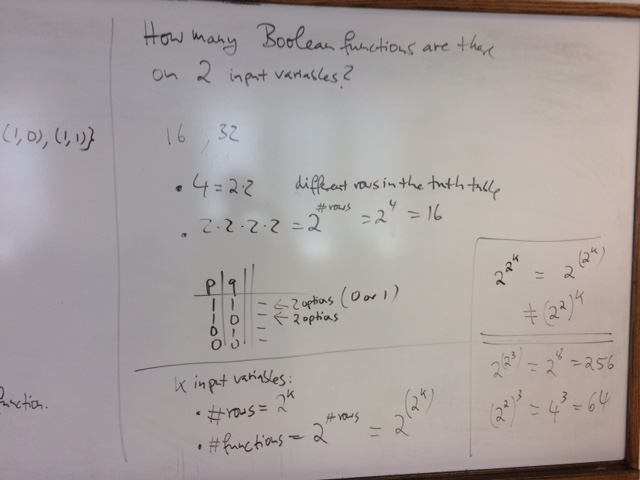 How many Boolean functions are there
on 2 input variables?
(1,0), (1,1)}
16, 32
• 4 = 2·2 different rows in the truth table
• 2·2·2·2 = 2^#rows = 2^4 = 16
p | q ||
1 | 1 || – ← 2 options (0 or 1)
1 | 0 || – ← 2 options
0 | 1 || –
0 | 0 || –
2^2^k = 2^(2^k)
≠ (2^2)^k
2^(2^3) = 2^8 = 256
(2^2)^3 = 4^3 = 64
function.
k input variables:
• #rows = 2^k
• #functions = 2^#rows = 2^(2^k)